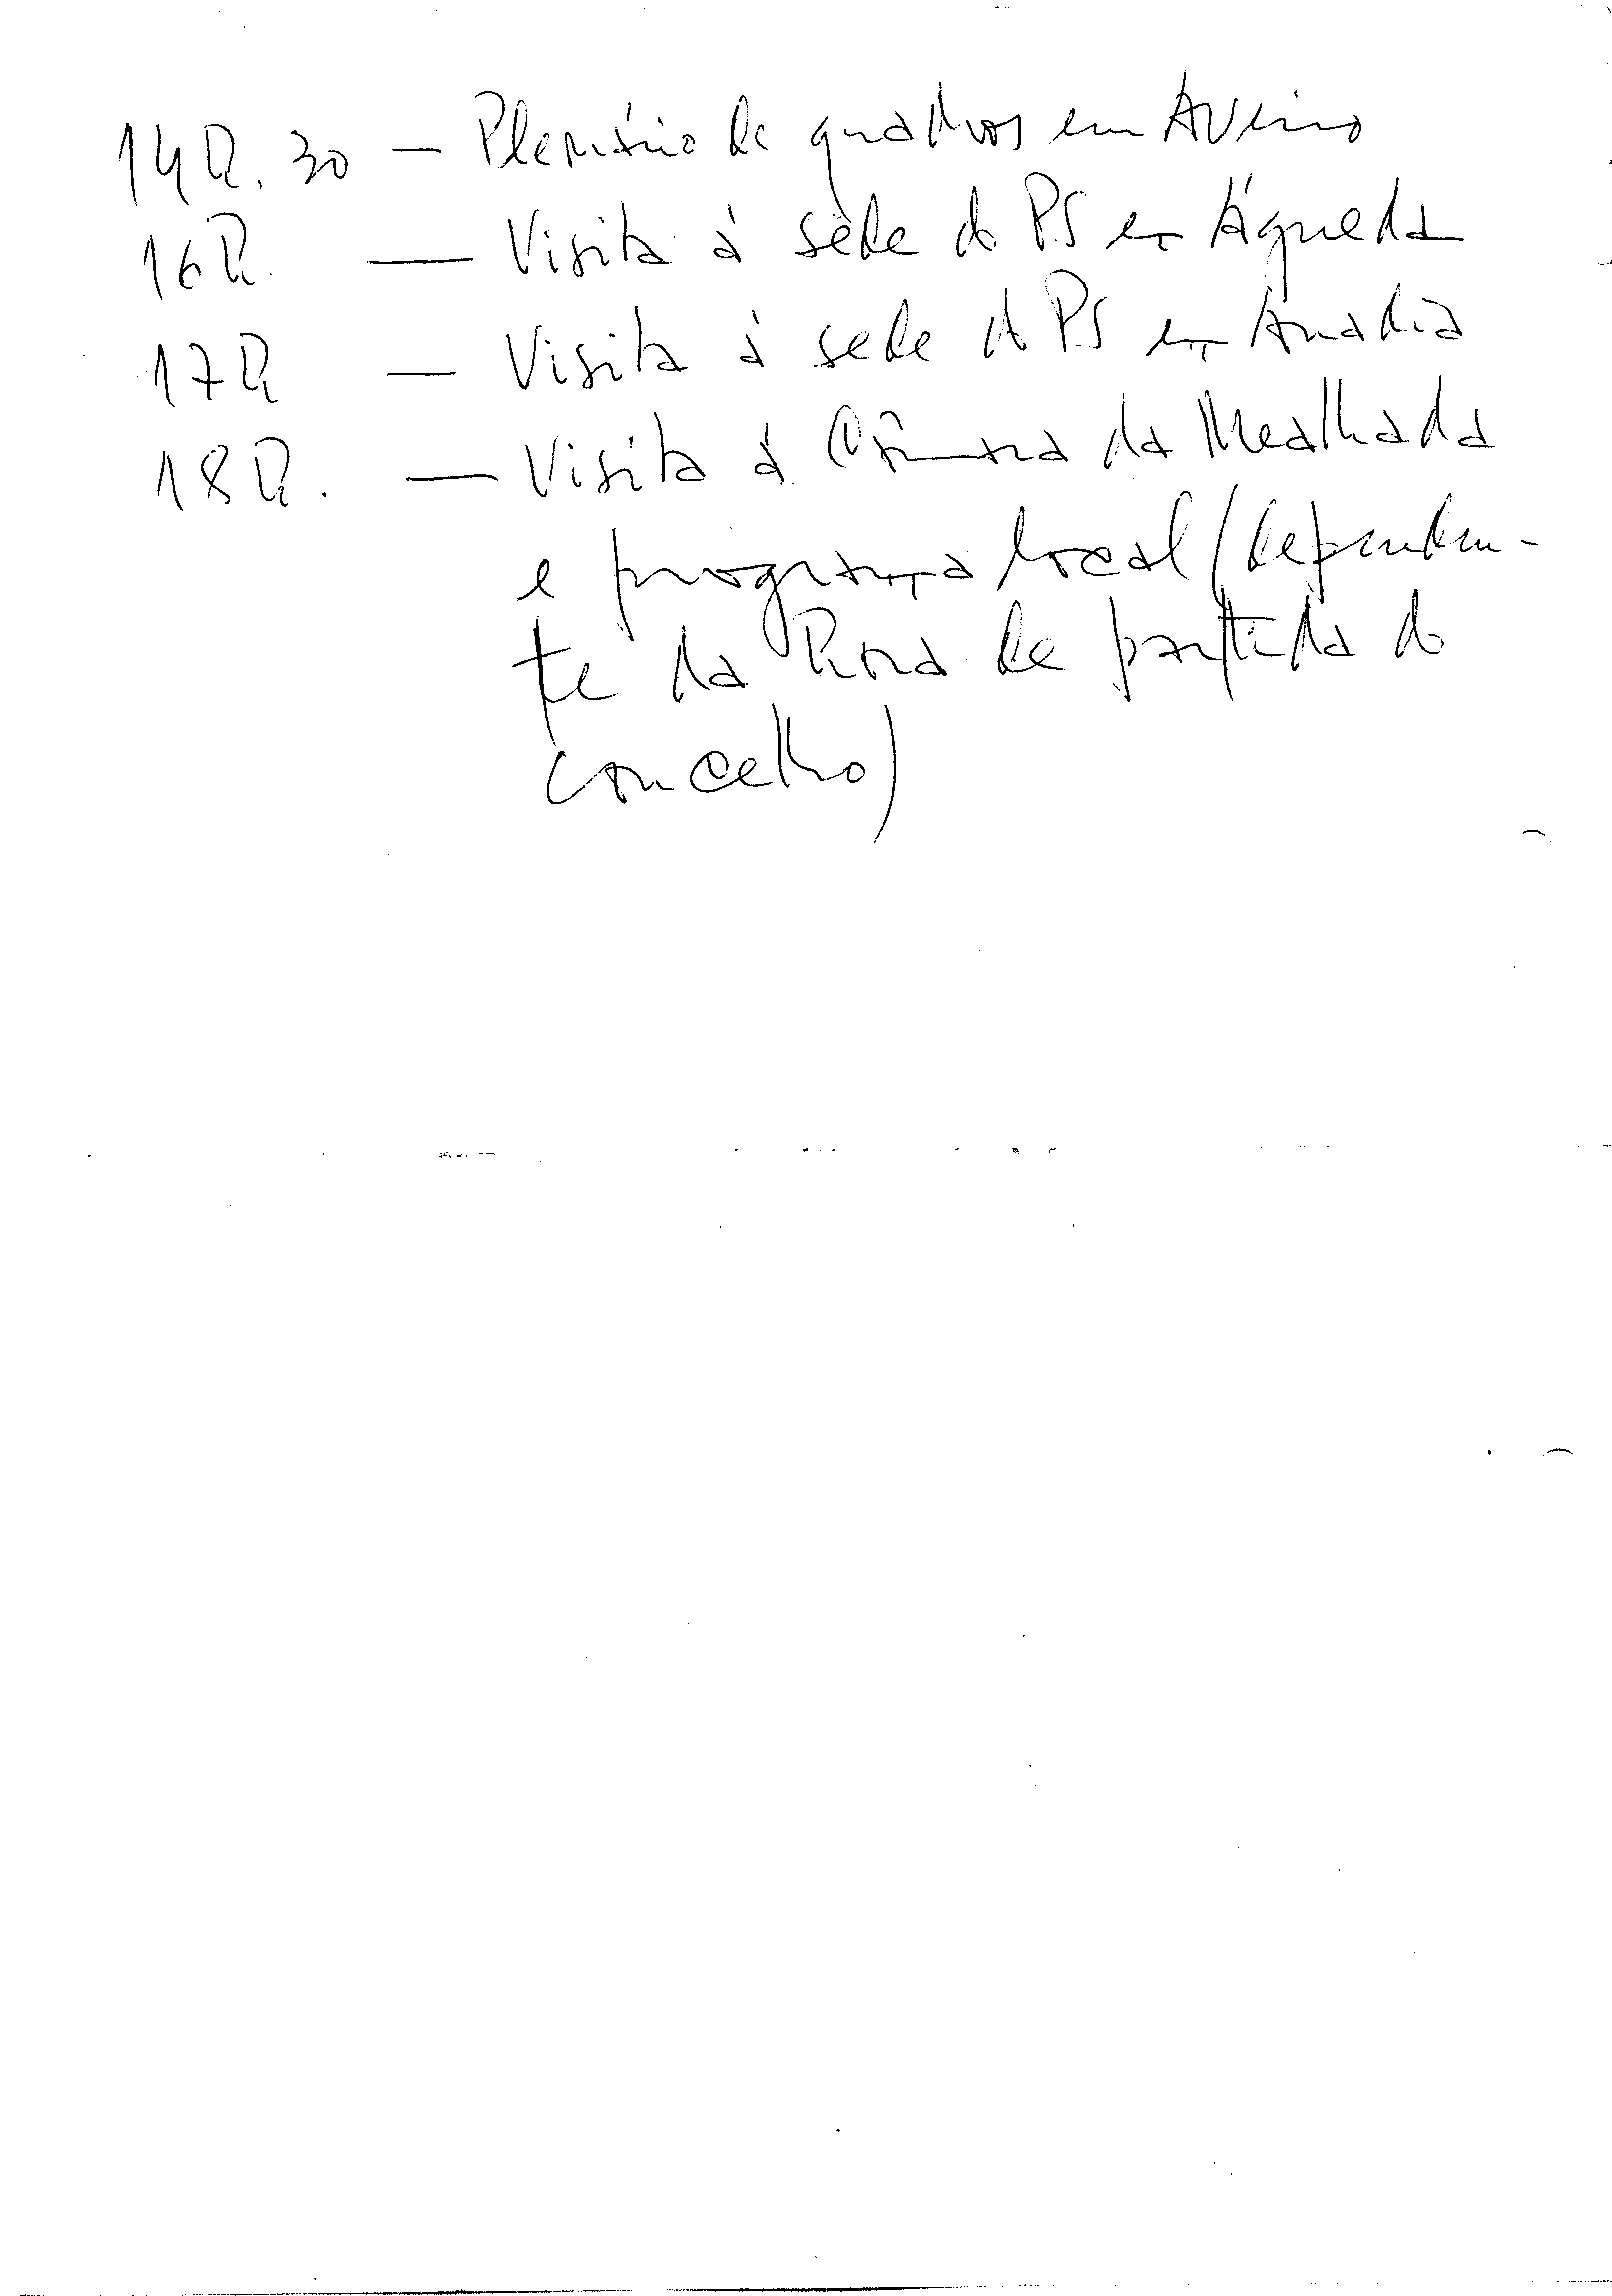 14h.30 — Plenário de quadros em Aveiro
16h. — Visita à sede do PS em Águeda
17h — Visita à sede do PS em Anadia
18h. — Visita à Câmara da Mealhada
e programa local (dependen-
te da hora de partida do
concelho)